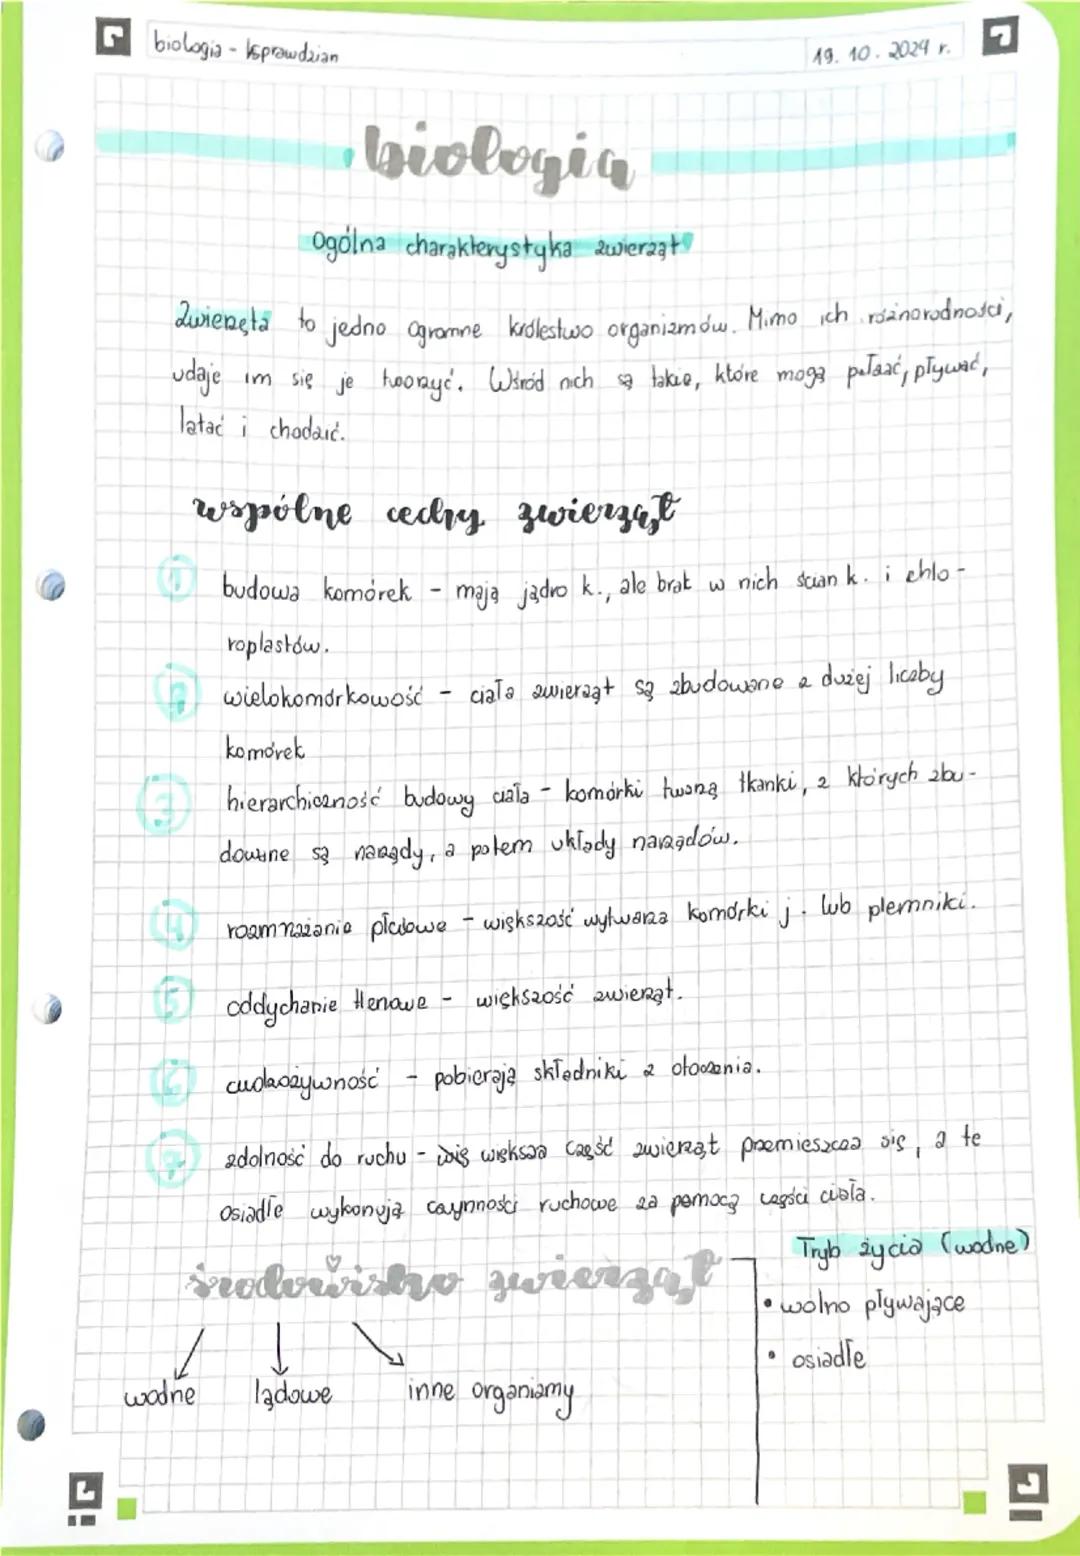 biologia - sprawdzian
19. 10. 2024 r.
biologia
Ogólna charakterystyka zwierząt
Zwierzęta to jedno ogromne królestwo organizmów. Mimo ich różnorodności,
udaje im się je tworzyć. Wśród nich są takie, które mogą pełzać, pływać,
latać i chodzić.
wspólne cechy zwierząt
1 budowa komórek - mają jądro k., ale brak w nich ścian k. i chlo-
roplastów.
2 wielokomórkowość - ciała zwierząt są zbudowane z dużej liczby
komórek
3 hierarchiczność budowy ciała - komórki tworzą tkanki, z których zbu-
dowane są narządy, a potem układy narządów.
4 rozmnażanie płciowe - większość wytwarza komórki j. lub plemniki.
5 oddychanie tlenowe - większość zwierząt.
6 cudzożywność - pobierają składniki z otoczenia.
7 zdolność do ruchu - większa część zwierząt przemieszcza się, a te
osiadłe wykonują czynności ruchowe za pomocą części ciała.
środowisko zwierząt
wodne lądowe inne organizmy
Tryb życia (wodne)
• wolno pływające
• osiadłe